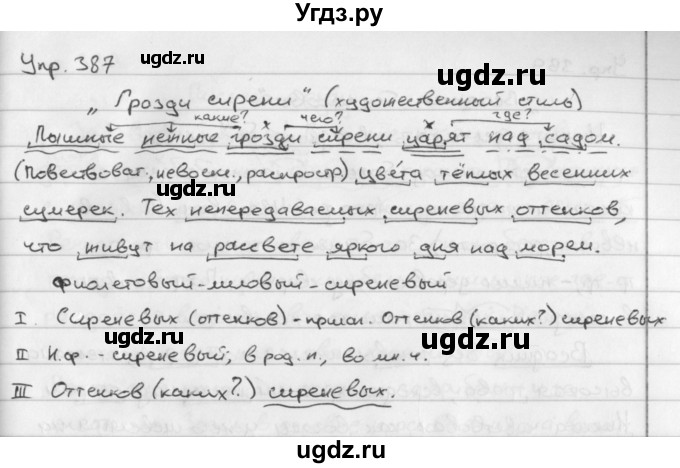 Угдз.ру
ugdz.ru
Упр. 387
ugdz.ru
„Грозди сирени" (художественный стиль)
какие? чего? где?
Пышные пенные грозди сирени царят над садом.
(Повествоват., невоскл., распростр) Цвета тёплых весенних
ugdz.ru ugdz.ru
сумерек. Тех непередаваемых сиреневых оттенков,
что живут на рассвете яркого дня над морем.
ugdz.ru
фиолетовый-лиловый-сиреневый
I. Сиреневых (оттенков) - прилаг. Оттенков (каких?) сиреневых
II Н.ф. - сиреневый, в род. п., во мн. ч.
ugdz.ru ugdz.ru
III Оттенков (каких?) сиреневых.
ugdz.ru